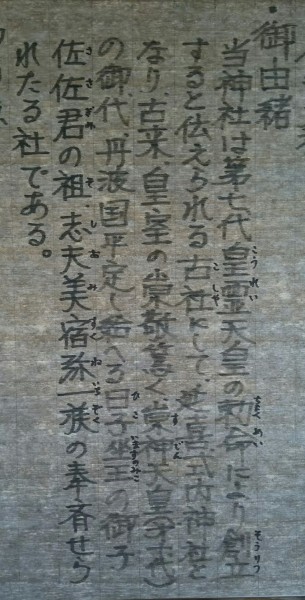 ・御由緒
当神社は第七代皇霊天皇の勅命により創立
すると伝えられる古社にして、延喜式内神社と
なり、古来皇室の崇敬篤く崇神天皇(第十代)
の御代、丹波国平定し給へる日子坐王の御子
佐佐君の祖、志夫美宿弥一族の奉斎せら
れたる社である。